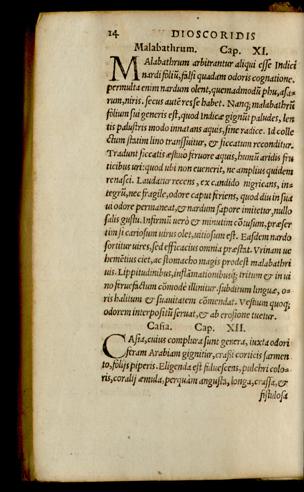 14 DIOSCORIDIS
Malabathrum. Cap. XI.
MAlabathrum arbitrantur aliqui esse Indici
nardi foliū, falsi quadam odoris cognatione.
permulta enim nardum olent, quemadmodū phu, asa-
rum, niris. secus autē res se habet. Nanq; malabathrū
folium sui generis est, quod Indicæ gignūt paludes, len
tis palustris modo innatans aquis, sine radice. Id colle
ctum statim lino transsuitur, & siccatum reconditur.
Tradunt siccatis æstiuo feruore aquis, humū aridis fru
ticibus uri: quod ubi non euenerit, ne amplius quidem
renasci. Laudatur recens, ex candido nigricans, in-
tegrū, nec fragile, odore caput feriens, quod diu in sua
ui odore permaneat, & nardum sapore imitetur, nullo
salis gustu. Infirmū uerò & minutim cōcisum, præser
tim si cariosum uirus olet, uitiosum est. Easdem nardo
sortitur uires, sed efficacius omnia præstat. Vrinam ue
hemētius ciet, ac stomacho magis prodest malabathri
uis. Lippitudinibus, inflāmationibusq; tritum & in ui
no feruefactum cōmodè illinitur. subditum linguæ, o-
ris halitum & suauitatem cōmendat. Vestium quoq;
odorem interpositū seruat, & ab erosione tuetur.
Casia. Cap. XII.
CAsiæ, cuius complura sunt genera, iuxta odori
feram Arabiam gignitur, crassi corticis sarmen
to, folijs piperis. Eligenda est fuluescens, pulchri colo-
ris, coralij æmula, perquàm angusta, longa, crassa, &
fistulosa